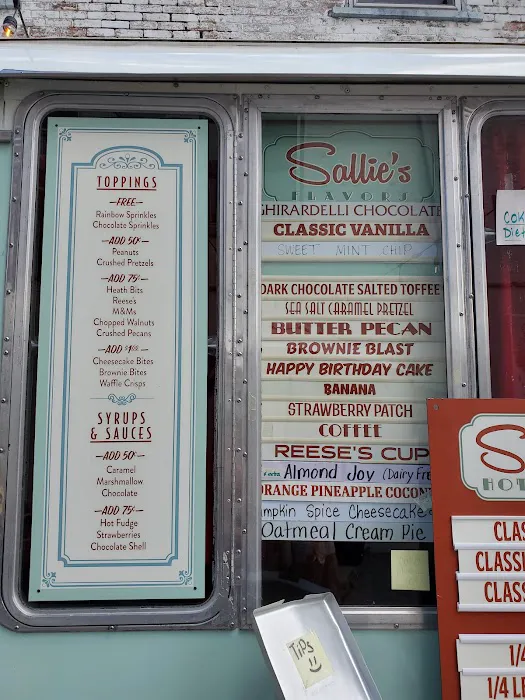 TOPPINGS
—FREE—
Rainbow Sprinkles
Chocolate Sprinkles
—ADD 50¢—
Peanuts
Crushed Pretzels
—ADD 75¢—
Heath Bits
Reese's
M&Ms
Chopped Walnuts
Crushed Pecans
—ADD $1.00—
Cheesecake Bites
Brownie Bites
Waffle Crisps
SYRUPS
& SAUCES
—ADD 50¢—
Caramel
Marshmallow
Chocolate
—ADD 75¢—
Hot Fudge
Strawberries
Chocolate Shell
Sallie's
FLAVORS
GHIRARDELLI CHOCOLATE
CLASSIC VANILLA
SWEET MINT CHIP
DARK CHOCOLATE SALTED TOFFEE
SEA SALT CARAMEL PRETZEL
BUTTER PECAN
BROWNIE BLAST
HAPPY BIRTHDAY CAKE
BANANA
STRAWBERRY PATCH
COFFEE
REESE'S CUP
extra Almond Joy (Dairy Fre
ORANGE PINEAPPLE COCON
mpkin Spice Cheesecake
Oatmeal Cream Pie
TiPS
Cok
Diet
S
HOT
CLAS
CLASSI
CLASS
1/4
1/4 L